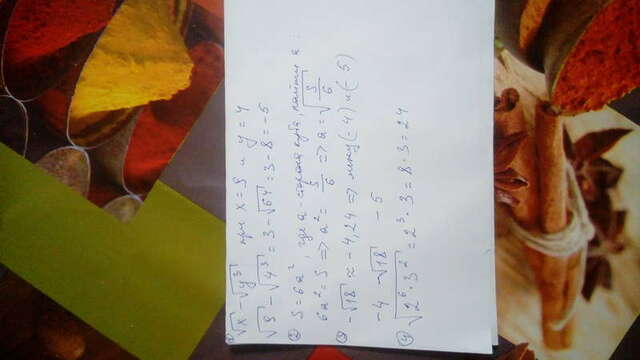 ① √x - √y³ при x = 9 и y = 4
√9 - √4³ = 3 - √64 = 3 - 8 = -5
② S = 6a², где a - сторона куба, найти a:
6a² = S => a² = S/6 => a = √(S/6)
③ -√18 ≈ -4,24 => между (-4) и (-5)
-4 -√18 -5
④ √(2⁶·3²) = 2³·3 = 8·3 = 24